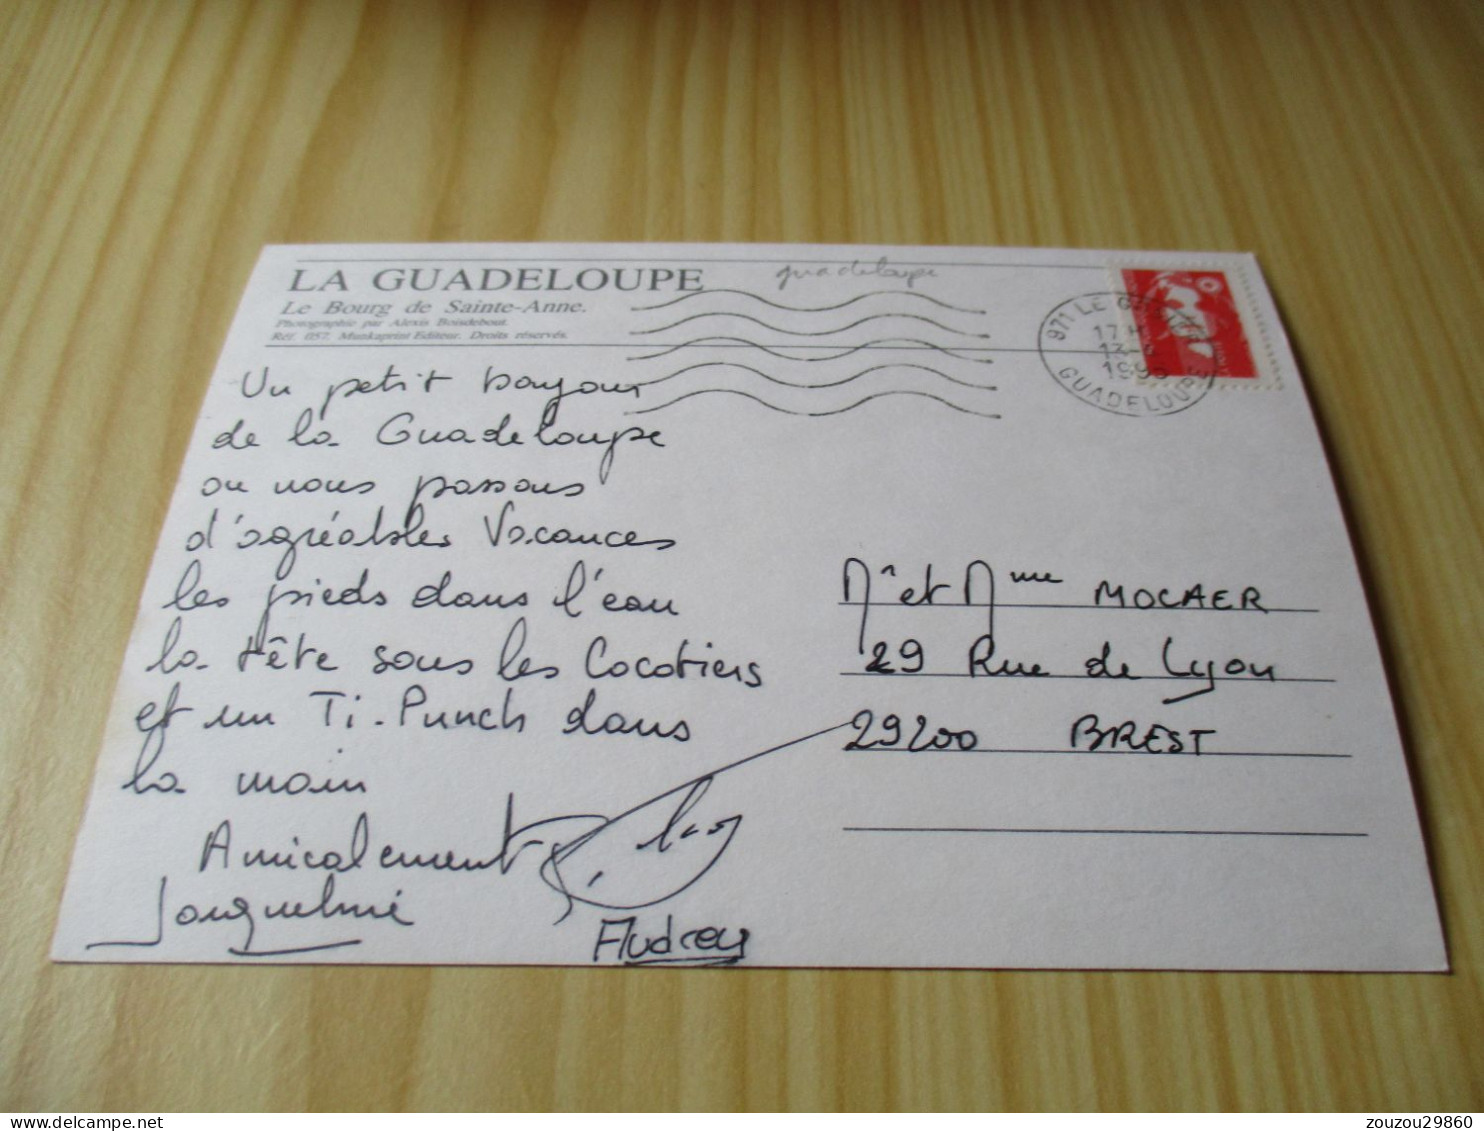 LA GUADELOUPE
Le Bourg de Sainte-Anne.
Photographie par Alexis Boisdebout.
Réf. 057. Munkaprint Editeur. Droits réservés.
guadeloupe
971 LE GOSIER
17 H
1995
GUADELOUPE
Un petit bonjour
de la Guadeloupe
ou nous passons
d'agréables Vacances
les pieds dans l'eau
la tête sous les Cocotiers
et un Ti-Punch dans
la main
Amicalement
Jacqueline
Audrey
Mr et Mme MOCAER
29 Rue de Lyon
29200 BREST
zouzou29860